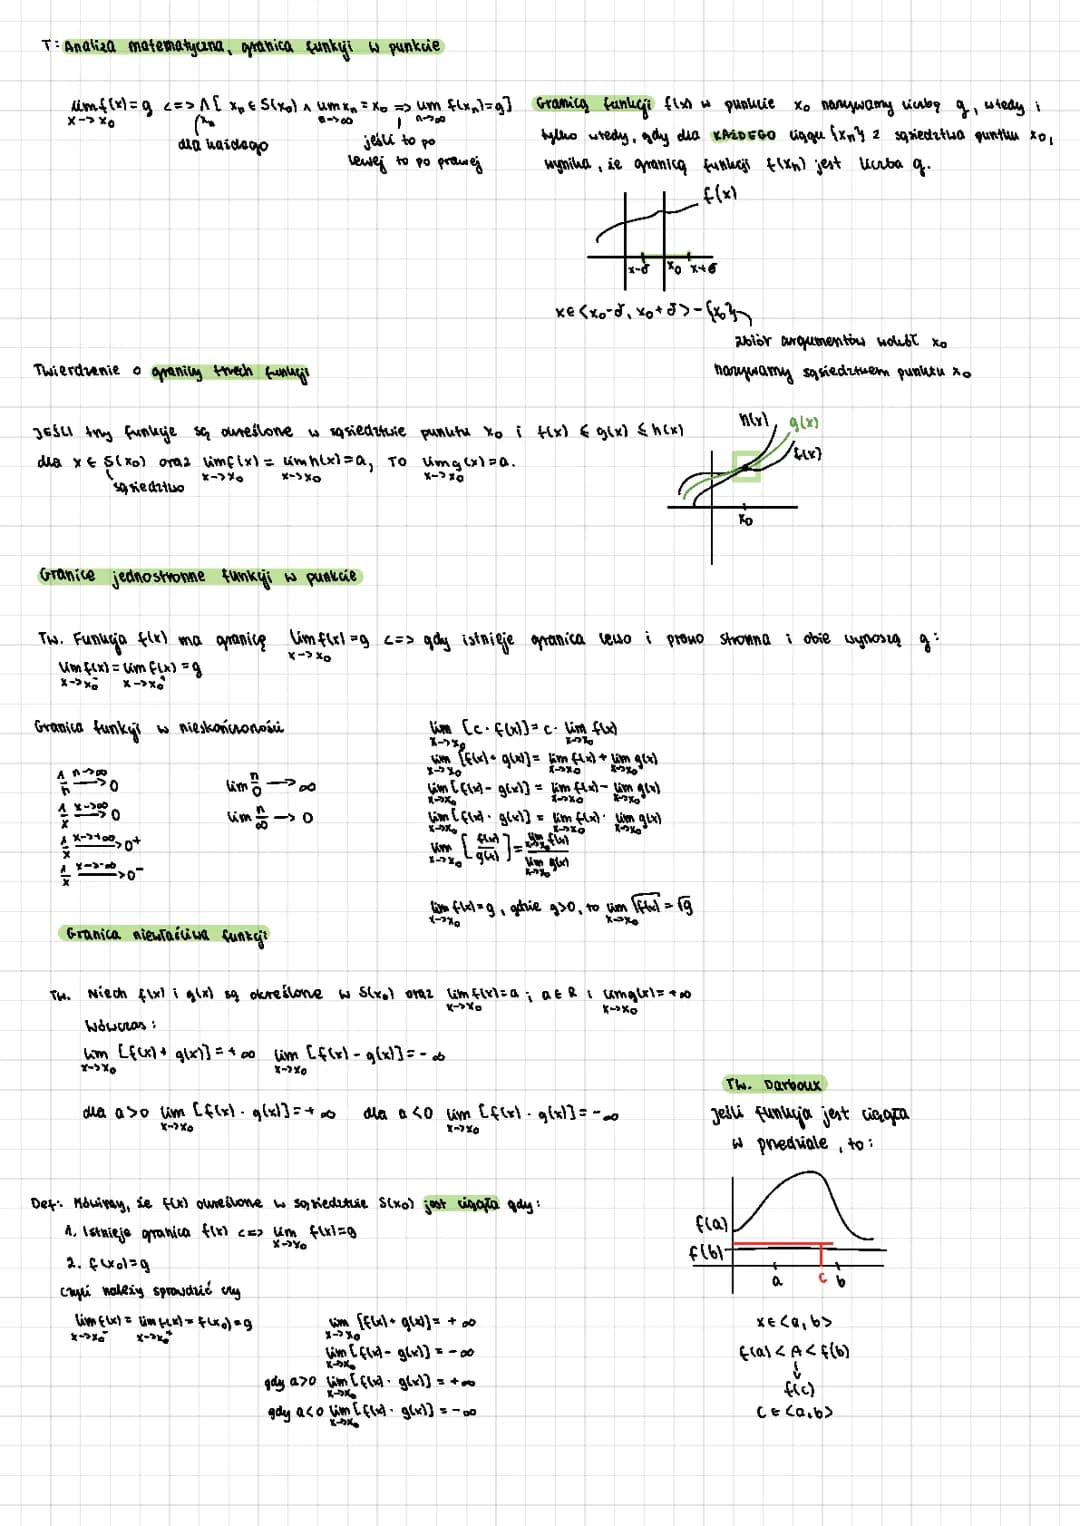 T: Analiza matematyczna, granica funkcji w punkcie
lim f(x) = g <=> ∧ [ xₙ ∈ S(x₀) ∧ lim xₙ = x₀ => lim f(xₙ) = g]
x->x₀ xₙ n->∞ n->∞
dla każdego
jeśli to po
lewej to po prawej
Granicą funkcji f(x) w punkcie x₀ nazywamy liczbę g, wtedy i
tylko wtedy, gdy dla KAŻDEGO ciągu {xₙ} z sąsiedztwa punktu x₀,
wynika, że granicą funkcji f(xₙ) jest liczba g.
f(x)
x-δ x₀ x+δ
x∈<x₀-δ, x₀+δ>-{x₀}
zbiór argumentów wokół x₀
nazywamy sąsiedztwem punktu x₀
Twierdzenie o granicy trzech funkcji
JEŚLI trzy funkcje są określone w sąsiedztwie punktu x₀ i f(x) ≤ g(x) ≤ h(x)
dla x ∈ S(x₀) oraz lim f(x) = lim h(x) = a, TO lim g(x) = a.
x->x₀ x->x₀ x->x₀
sąsiedztwo
h(x) g(x)
f(x)
x₀
Granice jednostronne funkcji w punkcie
Tw. Funkcja f(x) ma granicę lim f(x) = g <=> gdy istnieje granica lewo i prawo stronna i obie wynoszą g:
x->x₀
lim f(x) = lim f(x) = g
x->x₀⁻ x->x₀⁺
Granica funkcji w nieskończoności
1/n n->∞ 0
1/x x->∞ 0
1/x x->+∞ 0⁺
1/x x->-∞ 0⁻
lim n/0 -> ∞
lim n/∞ -> 0
lim [c · f(x)] = c · lim f(x)
x->x₀ x->x₀
lim [f(x) + g(x)] = lim f(x) + lim g(x)
x->x₀ x->x₀ x->x₀
lim [f(x) - g(x)] = lim f(x) - lim g(x)
x->x₀ x->x₀ x->x₀
lim [f(x) · g(x)] = lim f(x) · lim g(x)
x->x₀ x->x₀ x->x₀
lim [f(x)/g(x)] = lim f(x) / lim g(x)
x->x₀ x->x₀ x->x₀
lim f(x) = g, gdzie g>0, to lim √f(x) = √g
x->x₀ x->x₀
Granica niewłaściwa funkcji
Tw. Niech f(x) i g(x) są określone w S(x₀) oraz lim f(x) = a ; a ∈ R i lim g(x) = +∞
x->x₀ x->x₀
Wówczas:
lim [f(x) + g(x)] = +∞ lim [f(x) - g(x)] = -∞
x->x₀ x->x₀
dla a>0 lim [f(x) · g(x)] = +∞ dla a<0 lim [f(x) · g(x)] = -∞
x->x₀ x->x₀
Tw. Darboux
Jeśli funkcja jest ciągła
w przedziale, to:
f(a)
f(b)
a c b
x∈<a, b>
f(a) < A < f(b)
f(c)
c ∈ <a, b>
Def: Mówimy, że f(x) określone w sąsiedztwie S(x₀) jest ciągła gdy:
1. Istnieje granica f(x) <=> lim f(x) = g
x->x₀
2. f(x₀) = g
czyli należy sprawdzić czy
lim f(x) = lim f(x) = f(x₀) = g
x->x₀⁻ x->x₀⁺
lim [f(x) + g(x)] = +∞
x->x₀
lim [f(x) - g(x)] = -∞
x->x₀
gdy a>0 lim [f(x) · g(x)] = +∞
x->x₀
gdy a<0 lim [f(x) · g(x)] = -∞
x->x₀